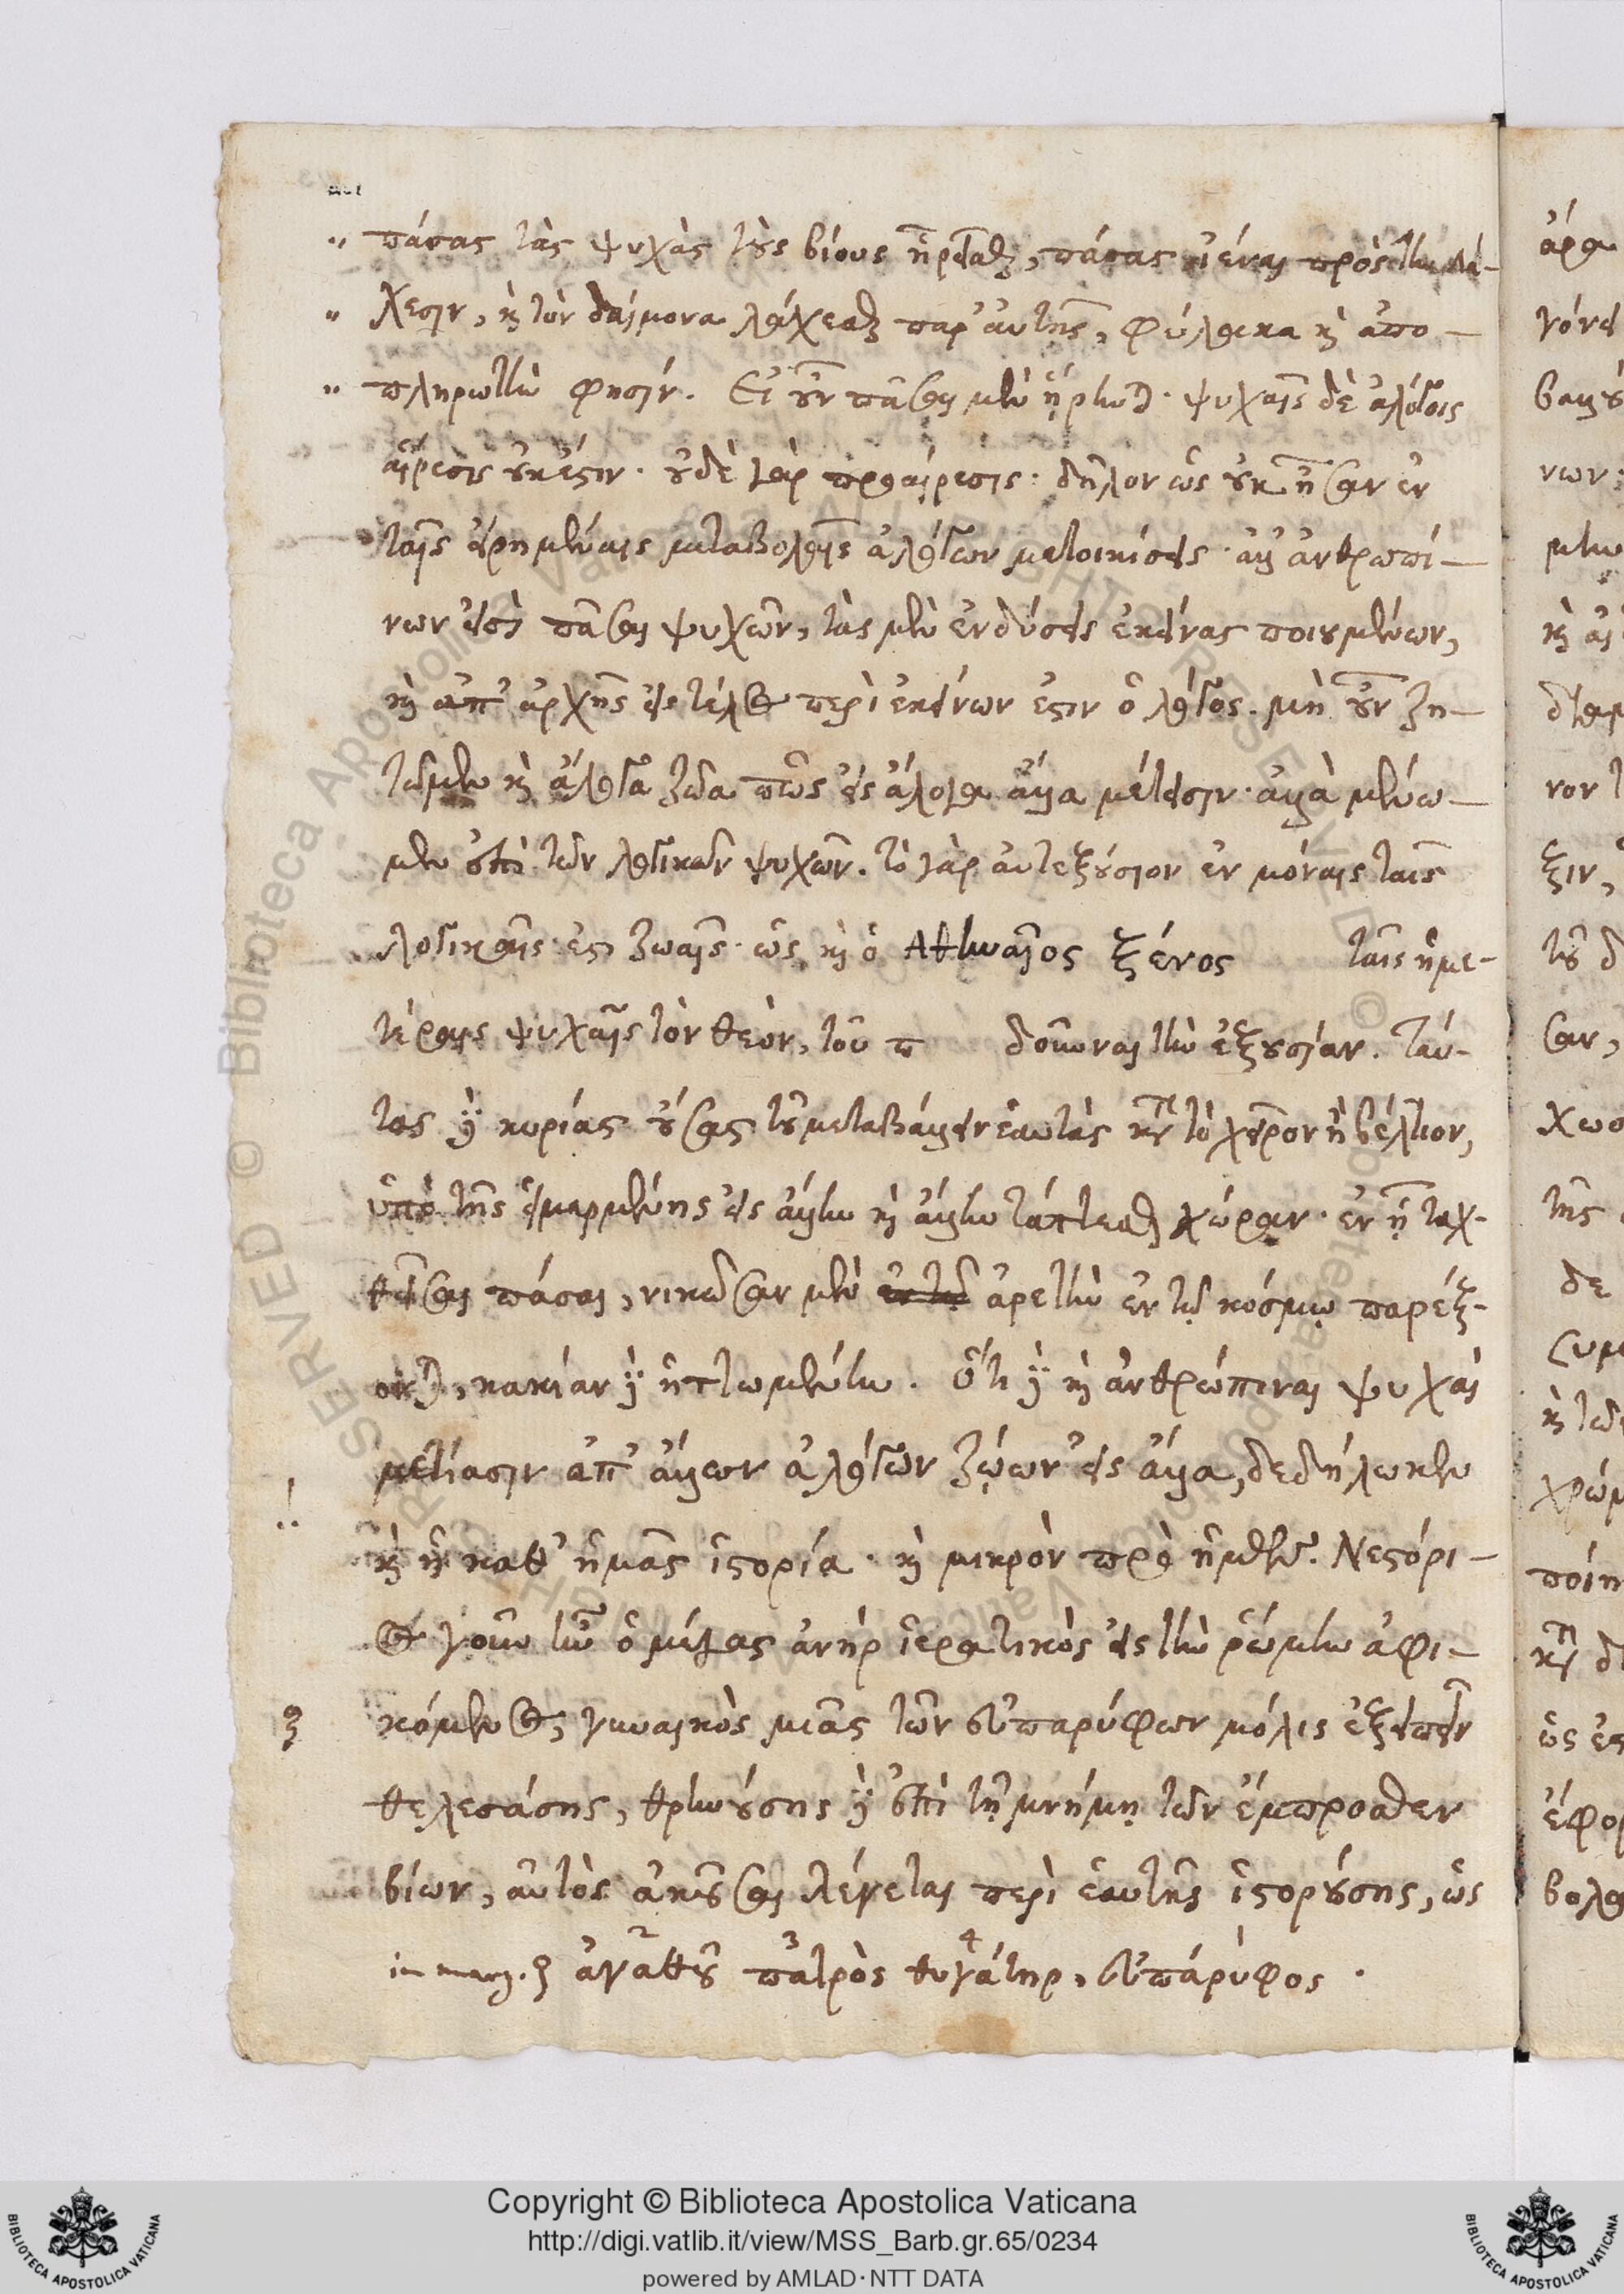 πάσας τὰς ψυχὰς τοὺς βίους ᾑρεῖσθαι, πάσας ἰέναι πρὸς τὴν Λά-
χεσιν, καὶ τὸν δαίμονα λάχεσθαι παρ' αὐτῆς, φύλακα καὶ ἀπο-
πληρωτὴν φησίν. Εἰ οὖν πᾶσαι μὲν ᾕρηνται· ψυχαῖς δὲ ἀλόγοις
αἵρεσις οὐκ ἔστιν· οὐδὲ γὰρ προαίρεσις· δῆλον ὡς οὐκ ἦσαν ἐν
ταῖς εἰρημέναις μεταβολαῖς ἀλόγων μετοικίσεις· ἀλλ' ἀνθρωπί-
νων εἰσὶ πᾶσαι ψυχῶν, τὰς μὲν ἐνδύσεις ἐκείνας ποιουμένων,
καὶ ἀπ' ἀρχῆς εἰς τέλος περὶ ἐκείνων ἐστὶν ὁ λόγος. μὴ οὖν ζη-
τῶμεν καὶ ἄλογα ζῶα πῶς εἰς ἄλογα ἄλλα μέτεισιν· ἀλλὰ μένω-
μεν ἐπὶ τῶν λογικῶν ψυχῶν. τὸ γὰρ αὐτεξούσιον ἐν μόναις ταῖς
λογικαῖς ἐστι ζωαῖς· ὡς καὶ ὁ Ἀθηναῖος ξένος ταῖς ἡμε-
τέραις ψυχαῖς τὸν θεὸν, τοῦ π δοῦναι τὴν ἐξουσίαν. Ταύ-
τας δὲ κυρίας οὔσας τοῦ μεταβάλλειν ἑαυτὰς κατὰ τὸ χεῖρον ἢ βέλτιον,
ὑπὸ τῆς εἱμαρμένης εἰς ἄλλην καὶ ἄλλην τάττεσθαι χώραν· ἐν ᾗ ταχ-
θεῖσαι πάσαι, νικῶσαν μὲν ἐν τῷ ἀρετὴν ἐν τῷ κόσμῳ παρέξ-
ονται, κακίαν δὲ ἡττωμένην. Ὅτι δὲ καὶ ἀνθρώπιναι ψυχαὶ
μετίασιν ἀπ' ἄλλων ἀλόγων ζῴων εἰς ἄλλα, δεδήλωκεν
καὶ ἡ καθ' ἡμᾶς ἱστορία· καὶ μικρὸν πρὸ ἡμῶν. Νεστόρι-
ος γοῦν ἦν ὁ μέγας ἀνὴρ ἱερατικὸς εἰς τὴν ῥώμην ἀφι-
κόμενος, γυναικὸς μιᾶς τῶν εὐπαρύφων μόλις ἐξειπεῖν
θελεσάσης, θρηνούσης δὲ ἐπὶ τῇ μνήμῃ τῶν ἔμπροσθεν
βίων, αὐτὸς ἀκοῦσαι λέγεται περὶ ἑαυτῆς ἱστορούσης, ὡς
in marg. ἀγαθοῦ πατρὸς θυγάτηρ, εὐπάρυφος.